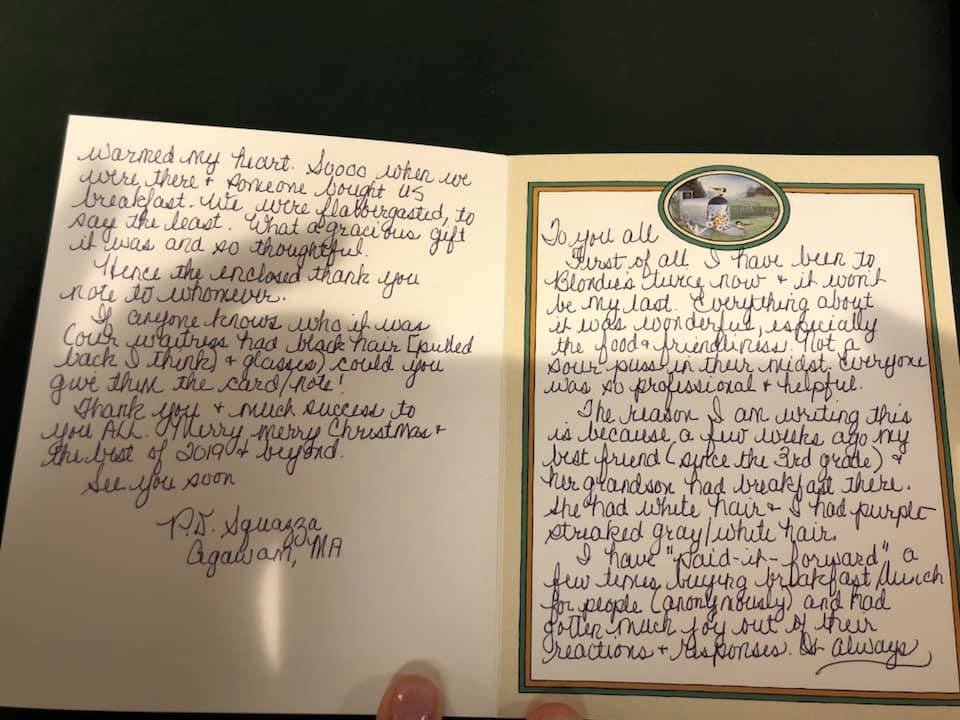 To you all
First of all I have been to
Blondie's twice now & it won't
be my last. Everything about
it was wonderful, especially
the food & friendliness. Not a
sour puss in their midst. Everyone
was so professional & helpful.
The reason I am writing this
is because a few weeks ago my
best friend (since the 3rd grade) &
her grandson had breakfast there.
She had white hair & I had purple
streaked gray/white hair.
I have "paid-it-forward" a
few times buying breakfast/lunch
for people (anonymously) and had
gotten much joy out of their
reactions & responses. It always
warmed my heart. Soooo when we
were there & someone bought us
breakfast. We were flabbergasted, to
say the least. What a gracious gift
it was and so thoughtful.
Hence the enclosed thank you
note to whomever.
If anyone knows who it was
(our waitress had black hair [pulled
back I think] & glasses) could you
give them the card/note!
Thank you & much success to
you ALL. Merry, Merry Christmas &
the best of 2019 & beyond.
See you soon
P.D. Squazza
Agawam, MA